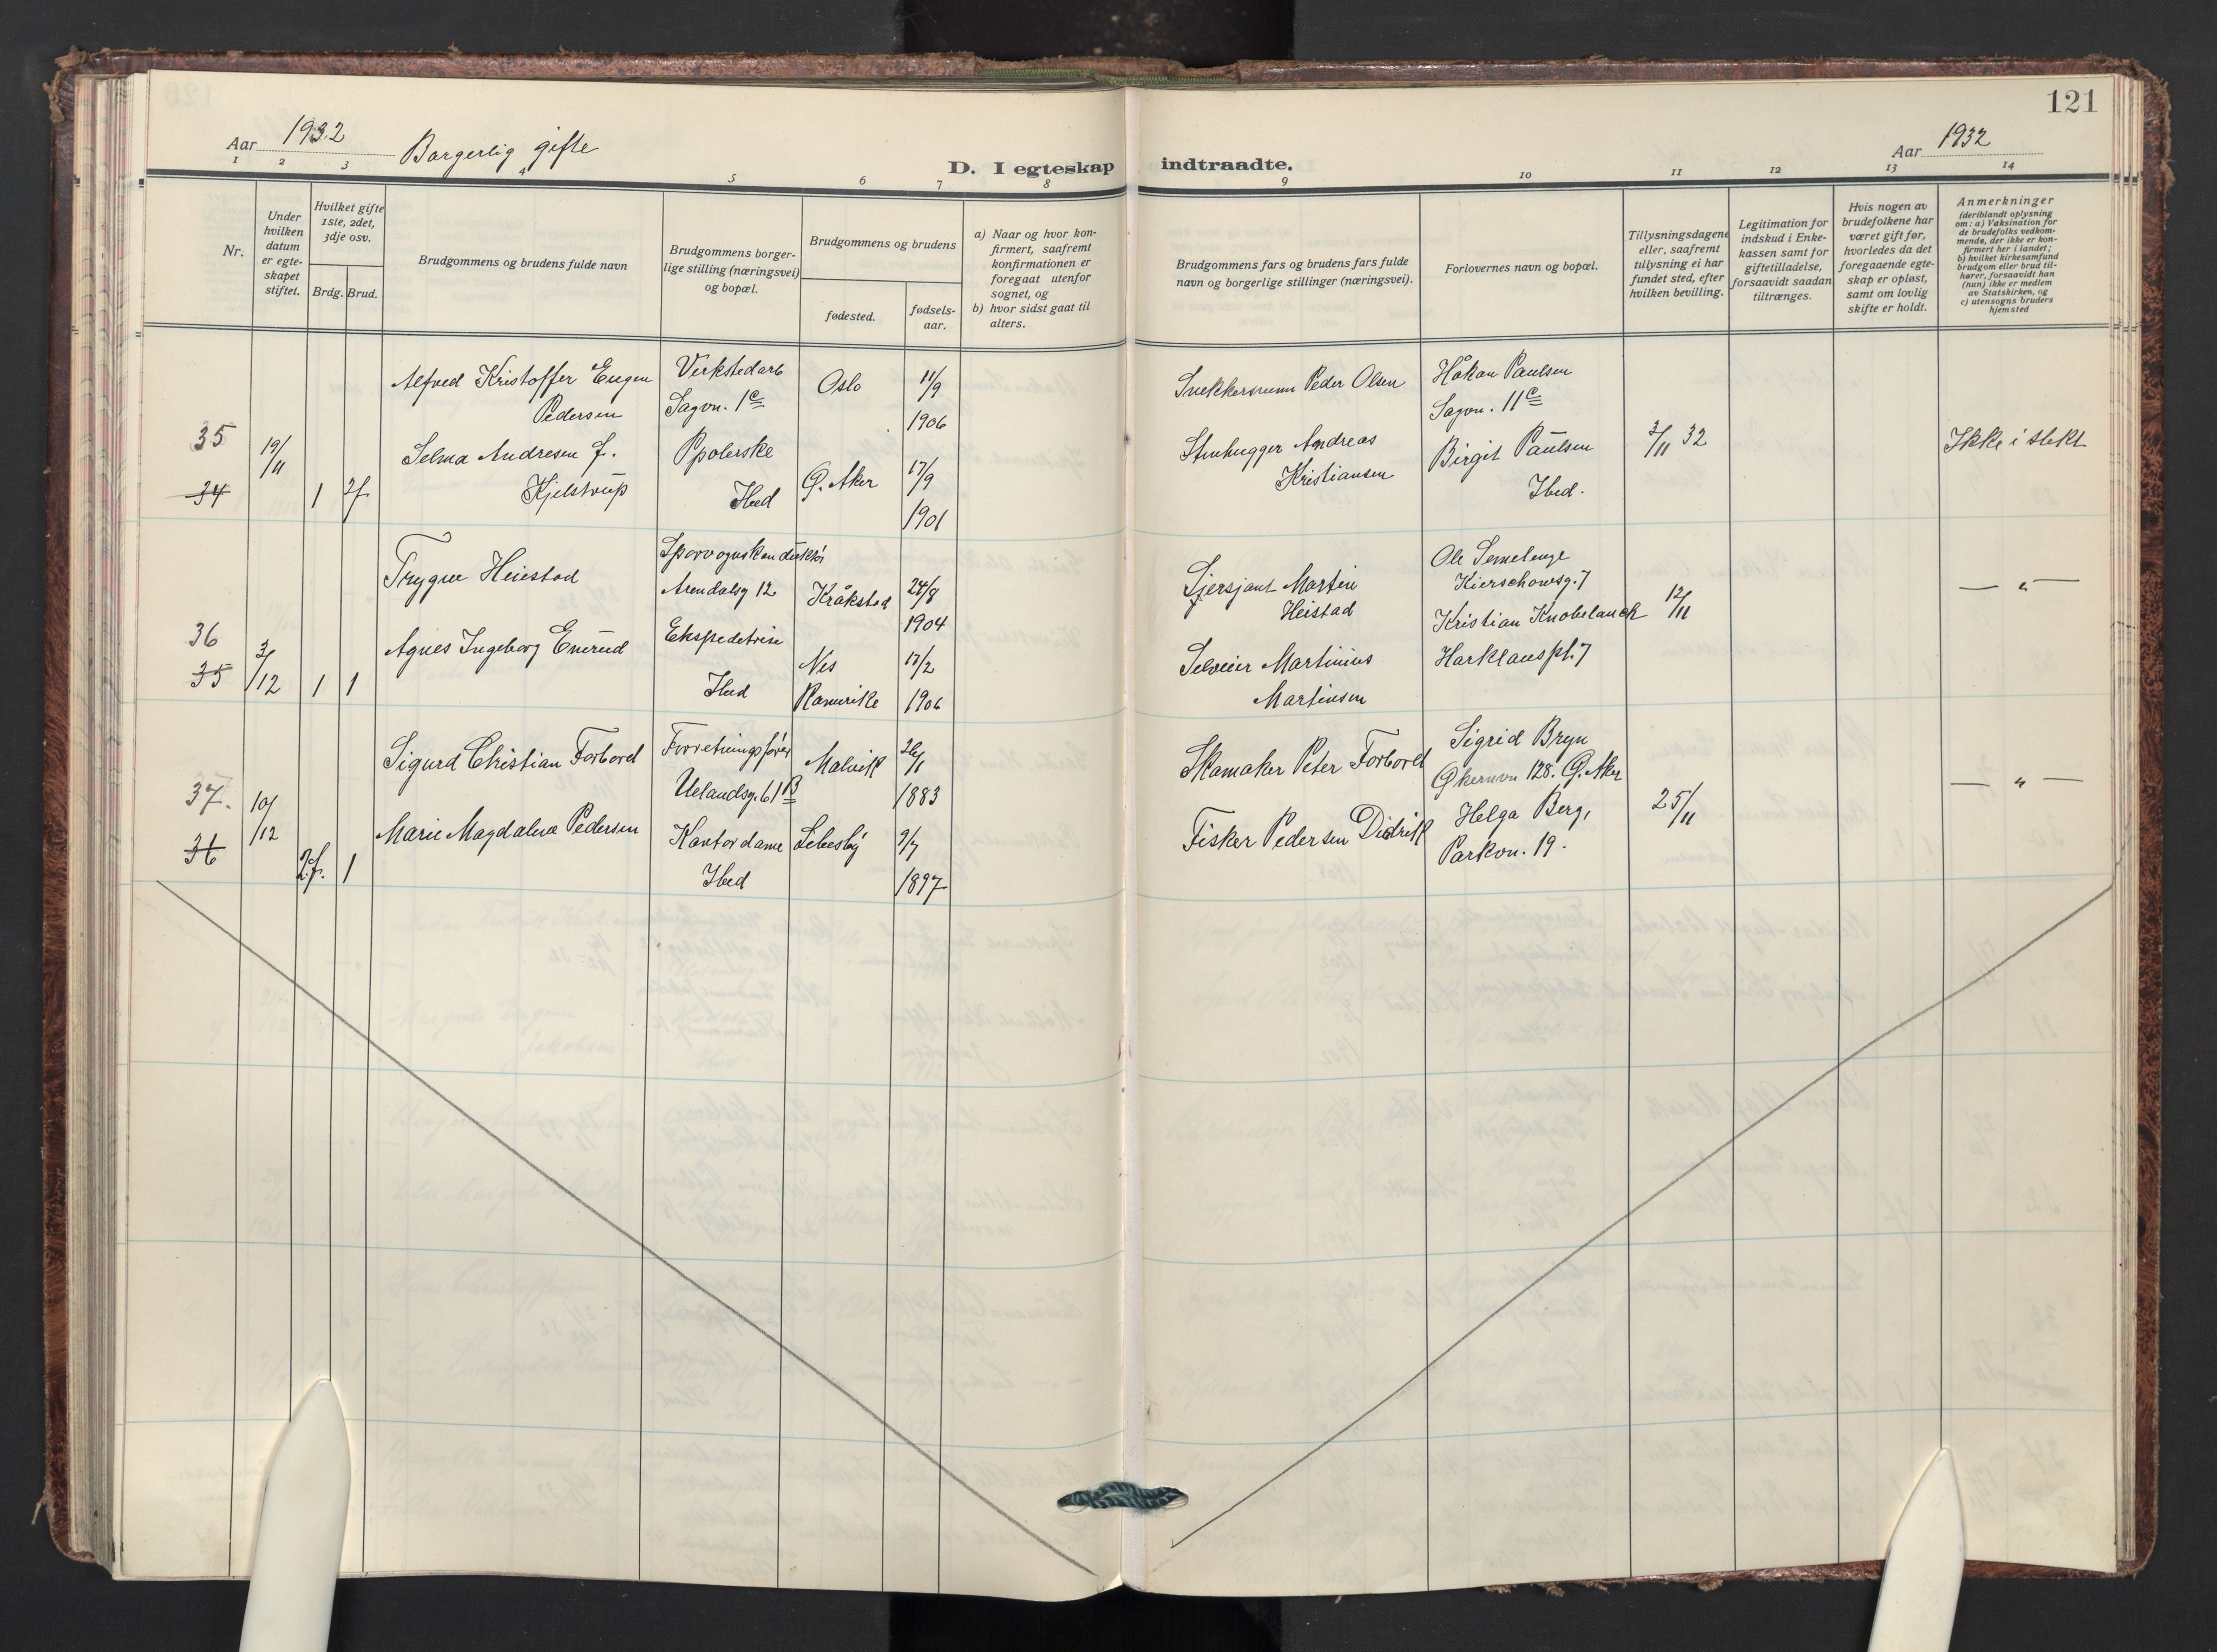 121
Aar 1932
Borgerlig gifte
D. I egteskap indtraadte.
Aar 1932
1 2 3 4 5 6 7 8 9 10 11 12 13 14
Nr.
Under hvilken datum er egteskapet stiftet.
Hvilket gifte 1ste, 2det, 3dje osv.
Brdg. Brud.
Brudgommens og brudens fulde navn
Brudgommens borgerlige stilling (næringsvei) og bopæl.
Brudgommens og brudens
fødested.
fødselsaar.
a) Naar og hvor konfirmert, saafremt konfirmationen er foregaat utenfor sognet, og
b) hvor sidst gaat til alters.
Brudgommens fars og brudens fars fulde navn og borgerlige stillinger (næringsvei).
Forlovernes navn og bopæl.
Tillysningsdagene eller, saafremt tillysning ei har fundet sted, efter hvilken bevilling.
Legitimation for indskud i Enkekassen samt for giftetilladelse, forsaavidt saadan tiltrænges.
Hvis nogen av brudefolkene har været gift før, hvorledes da det foregaaende egteskap er opløst, samt om lovlig skifte er holdt.
Anmerkninger
(deriblandt oplysning om: a) Vaksination for de brudefolks vedkommende, der ikke er konfirmert her i landet; b) hvilket kirkesamfund brudgom eller brud tilhører, forsaavidt han (hun) ikke er medlem av Statskirken, og c) utensogns bruders hjemsted
35
34
19/11
1 2f
Alfred Kristoffer Eugen
Pedersen
Verkstedarb
Sagvn. 1c
Oslo
11/9
1906
Snekkersvenn Peder Olsen
Håkon Paulsen
Sagvn. 11c
Selma Andresen f.
Kjelstrup
Ppolerske
Ibed
Ø. Aker
17/9
1901
Stenhugger Andreas
Kristiansen
Birgit Paulsen
Ibed.
3/11 32
Ikke i slekt
36
35
3/12
1 1
Trygve Heiestad
Sporvognskonduktør
Arendalsg 12
Kråkstad
24/8
1904
Sjersjant Martin
Heistad
Ole
Kierschowsg. 7
Agnes Ingeborg Enerud
Ekspeditrise
Ibed
Nes
Romerike
17/2
1906
Selveier Martinius
Martinsen
Kristian Knobelauch
Harklauspl. 7
12/11
— " —
37.
36
10/12
2.f. 1
Sigurd Christian Forbord
Forretningsfører
Uelandsg. 61 B
Malvik
26/1
1883
Skomaker Peter Forbord
Sigrid Bryn
Økernvn 128. Ø. Aker
Marie Magdalene Pedersen
Kontordame
Ibed
Lebesby
9/7
1897
Fisker Pedersen Didrik
Helga Berg,
Parkvn. 19.
25/11
— " —